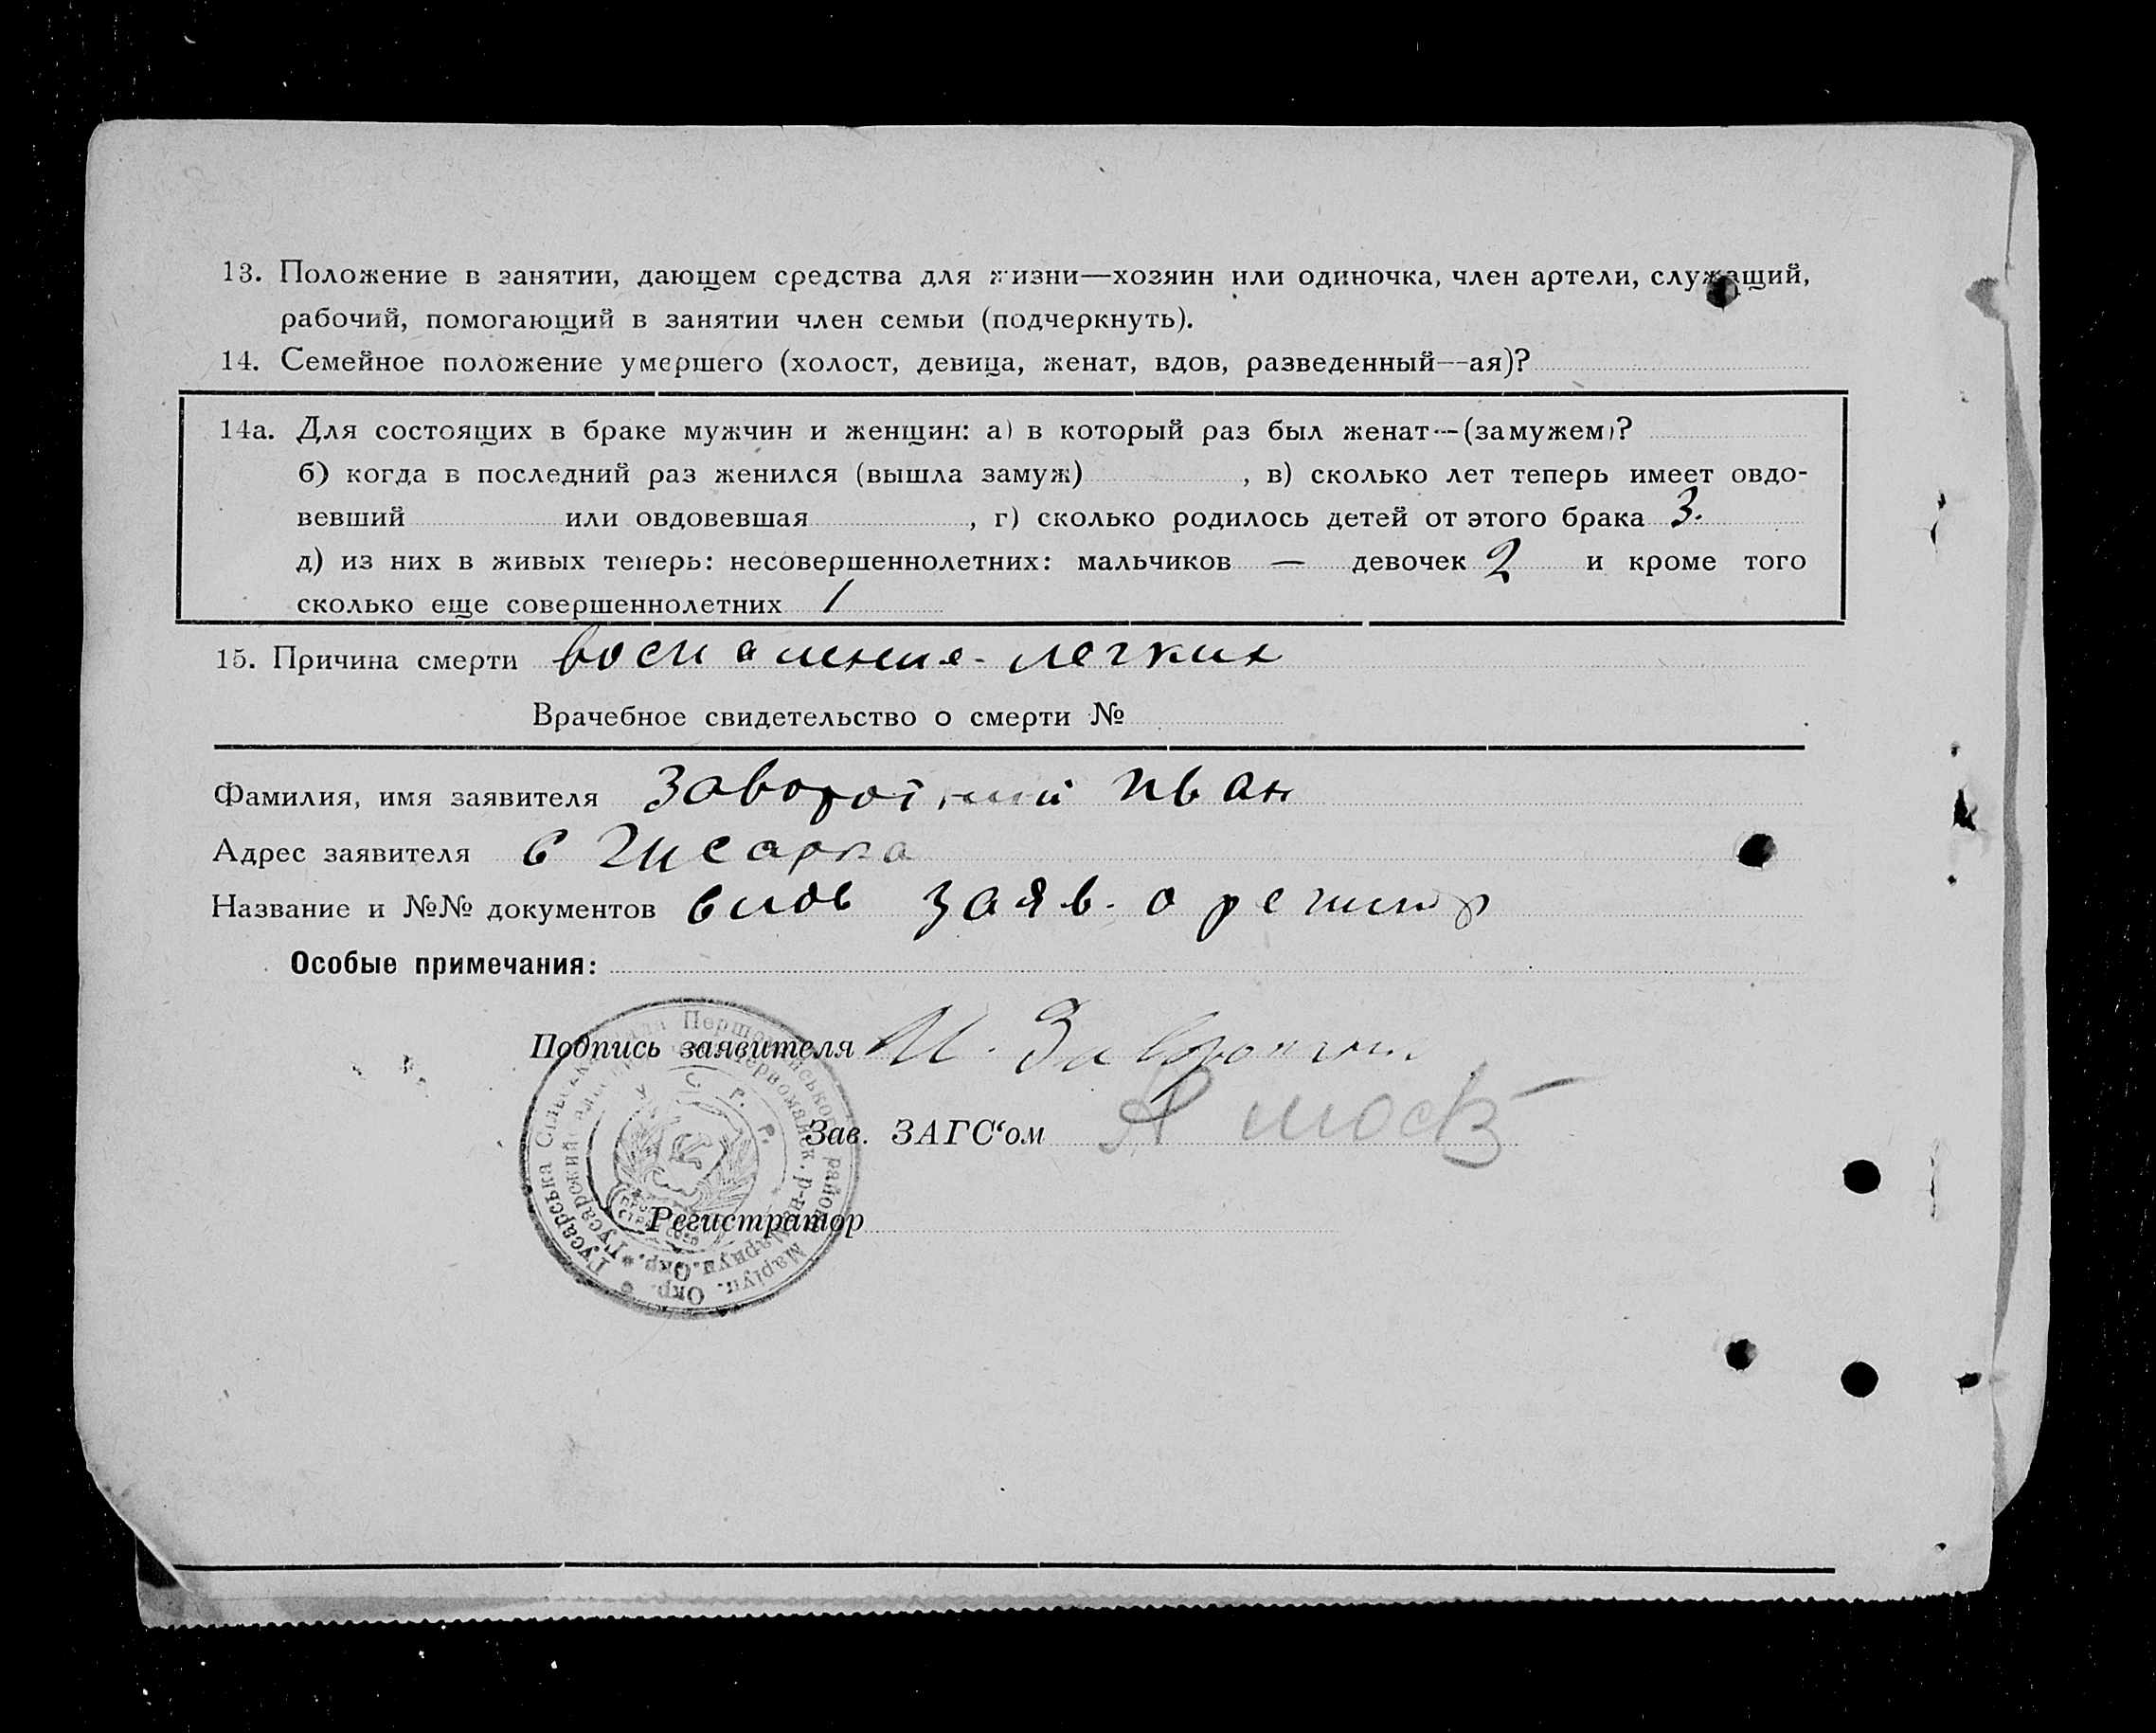 13. Положение в занятии, дающем средства для жизни—хозяин или одиночка, член артели, служащий,
рабочий, помогающий в занятии член семьи (подчеркнуть).
14. Семейное положение умершего (холост, девица, женат, вдов, разведенный—ая)?
14а. Для состоящих в браке мужчин и женщин: а) в который раз был женат—(замужем)?
б) когда в последний раз женился (вышла замуж) , в) сколько лет теперь имеет овдо-
вевший или овдовевшая , г) сколько родилось детей от этого брака 3.
д) из них в живых теперь: несовершеннолетних: мальчиков — девочек 2 и кроме того
сколько еще совершеннолетних 1
15. Причина смерти воспаление легких
Врачебное свидетельство о смерти №
Фамилия, имя заявителя Заворотний Иван
Адрес заявителя с
Название и №№ документов заяв. о
Особые примечания:
Подпись заявителя И.
Зав. ЗАГС‘ом
Регистратор
Гусарська Сільська Рада Першомайського району Маріуп. Окр.
Гусарский Первомайск. р-на Мариуп. Окр.
У. С. Р. Р.